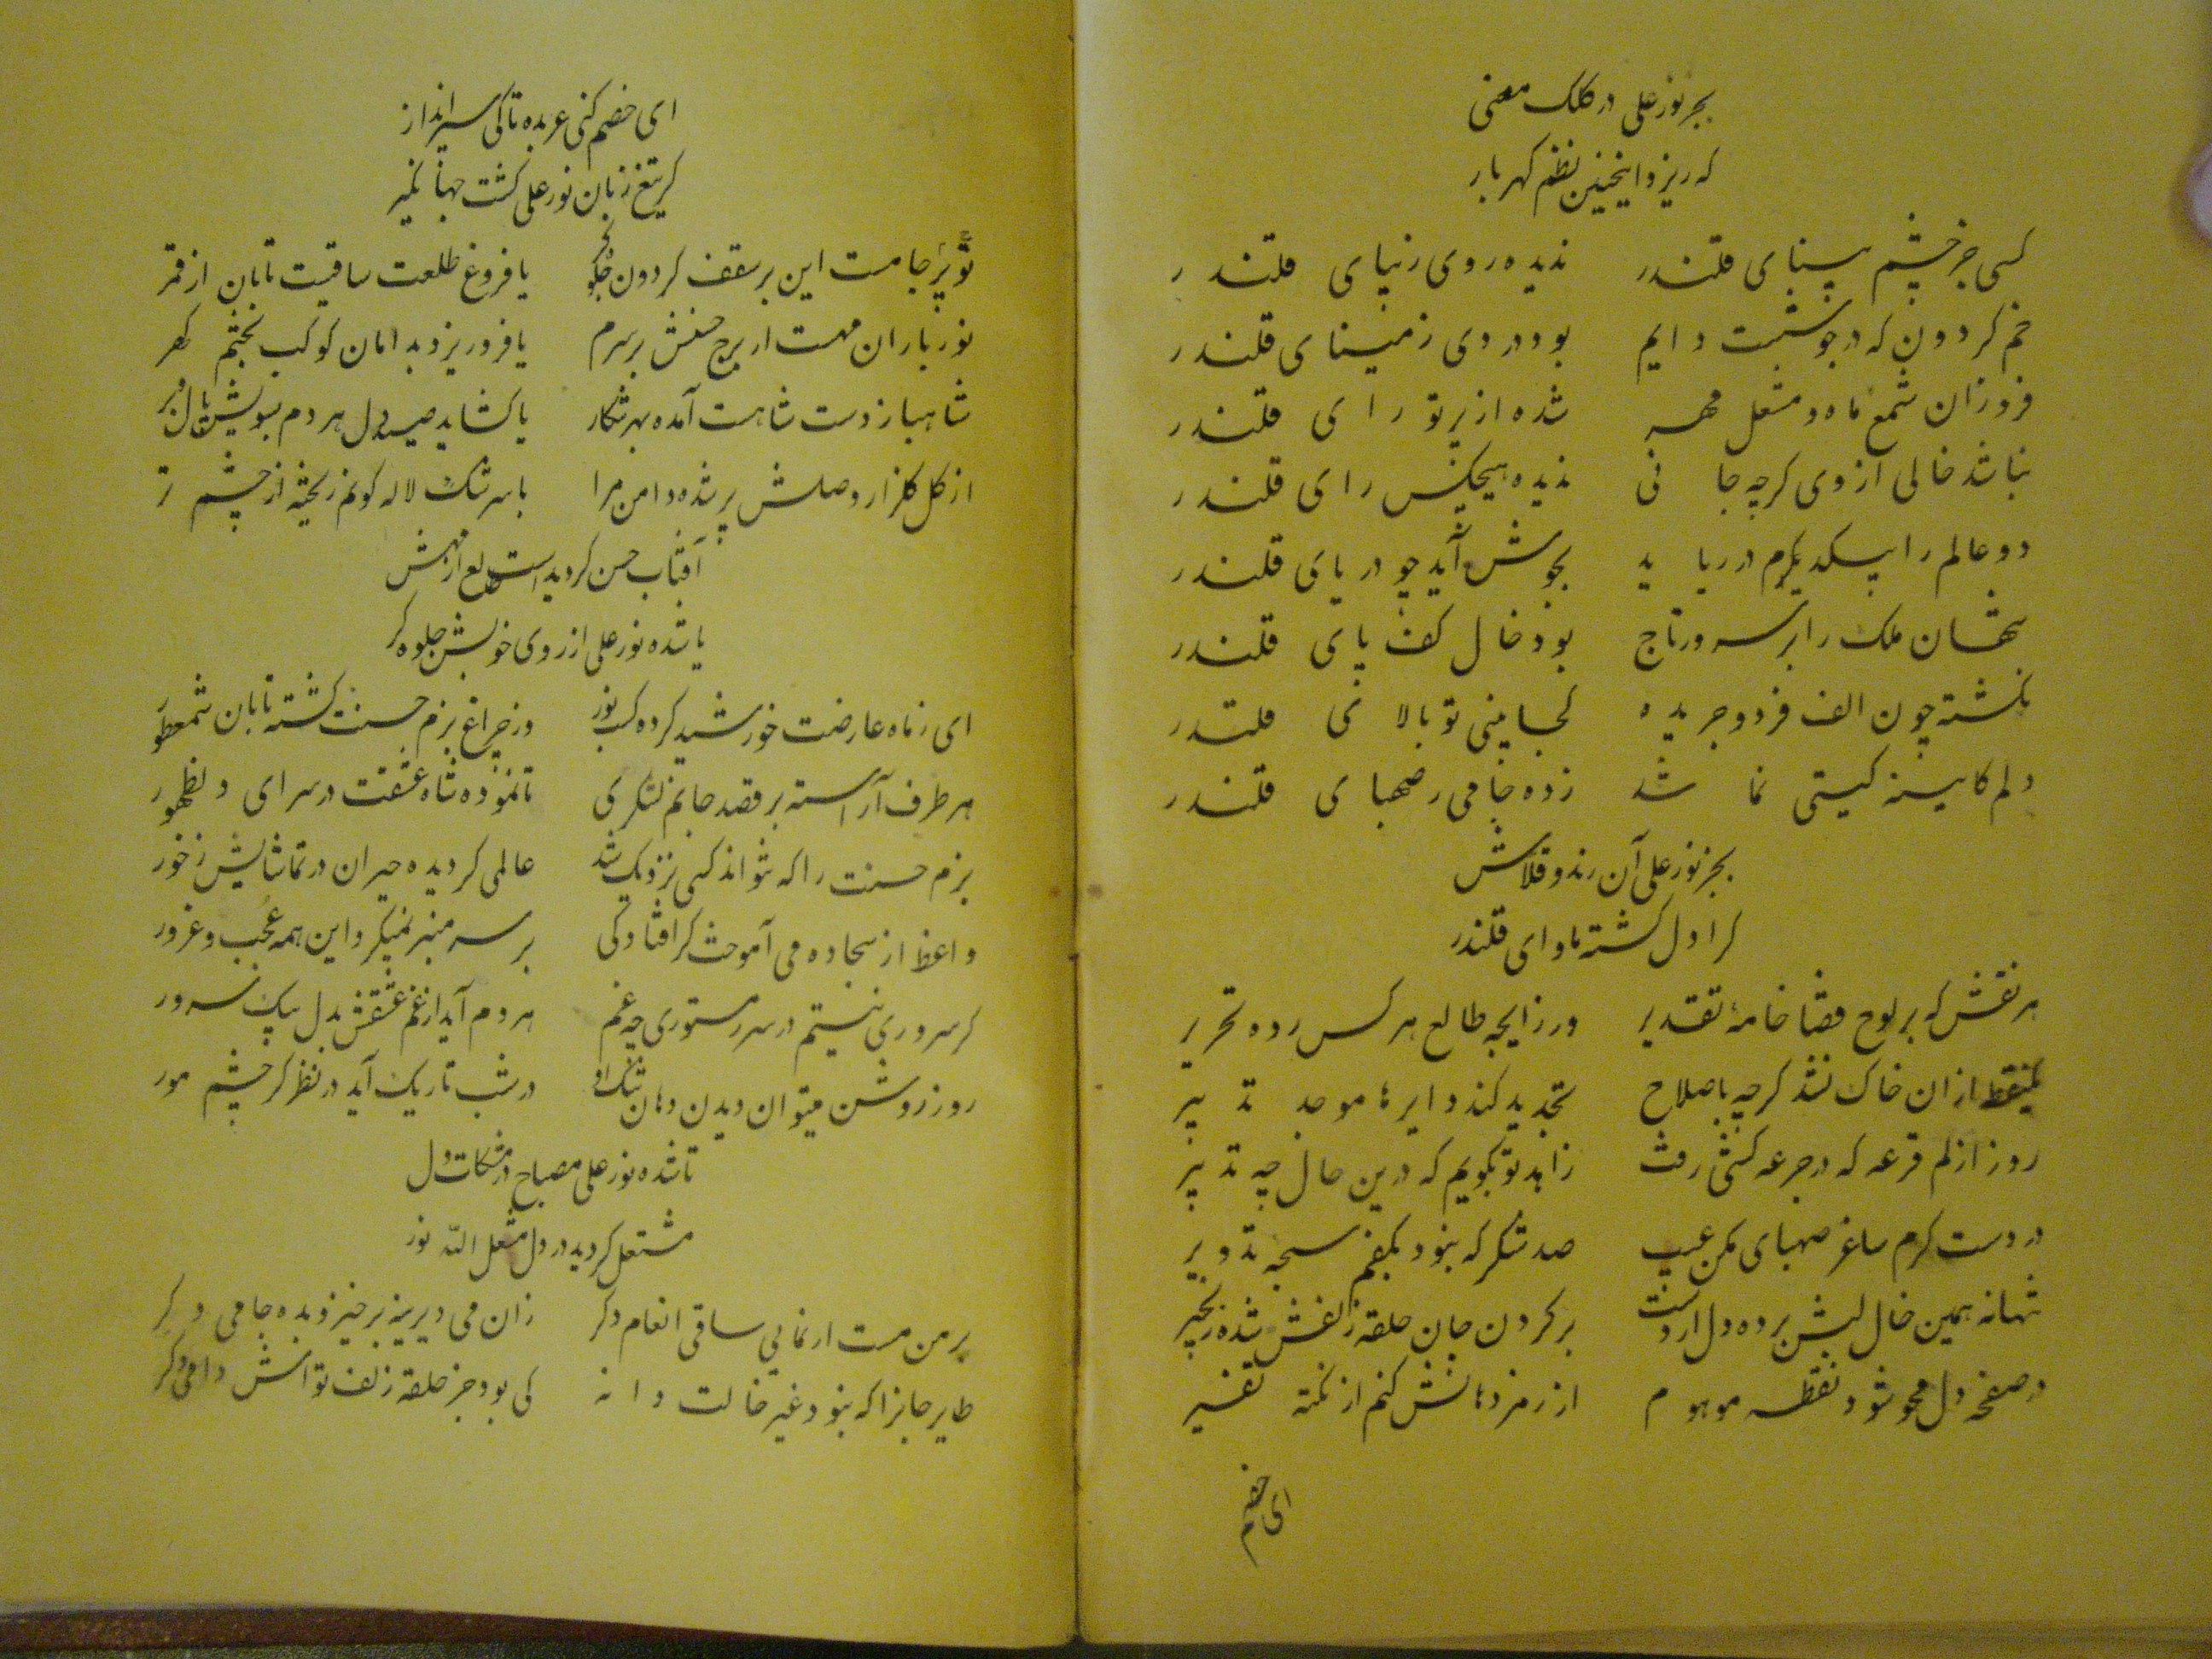 بجز نور علی در کلک معنی
که ریزد اینچنین نظم کهربار
کسی جز چشم بینای قلندر ندیده روی زیبای قلندر
خم کردون که در جوشست دایم بود دردی ز مینای قلندر
فروزان شمع ماه و مشعل مهر شده از پرتو رای قلندر
نباشد خالی از وی کرچه جائی ندیده هیچکس رای قلندر
دو عالم را بیکدم در رباید بجوش آید چو دریای قلندر
شهان ملک را بر سر در تاج بود خال کف پای قلندر
نکشته چون الف فرد و جریده کجا بینی تو بالای قلندر
دلم کایینه کیتی نما شد زده جامی ز صهبای قلندر
بجز نور علی آن رند و قلاش
کرا دل کشته ماوای قلندر
هر نقش که بر لوح قضا خامهٔ تقدیر در زایجه طالع هر کس زده تحریر
یکنقطه از ان خاک نشد کرچه باصلاح تجدید کند دایرها موجد تدبیر
روز ازلم قرعه که در جرعه کشی رفت زاهد تو بکویم که درین حال چه تدبیر
در دست کرم ساغر صهبای مکن عیب صد شکر که نبود بکفم سبحه تذویر
تنهانه همین خال لبش برده دل از دست بر کردن جان حلقه زلفش شده زنجیر
در صفحه دل محو شود نقطه موهوم از رمز دهانش کنم از نکته تفسیر
ای خصم
ای خصم کنی عربده تا کی سپر انداز
کز تیغ زبان نور علی کشت جهانکیر
تو پر جامست این بر سقف کردون جلوه‌کر یا فروغ طلعت ساقیست تابان از قمر
نور باران مهت از برج حسنش بر سرم یا فرو ریزد بدامان کوکب بختم کهر
شاهباز دست شاهست آمده بهر شکار یا کشاید صید دل هر دم بسویش بال و پر
از کل کلزار وصلش پر شده دامن مرا یا سرشک لاله کونم ریخته از چشم تر
آفتاب حسن کردیدست طالع از مهش
یا شده نور علی از روی خوبش جلوه‌کر
ای ز ماه عارضت خورشید کرده کسب نور وز چراغ بزم حسنت کشته تابان شمع طور
هر طرف آراسته بر قصد جانم لشکری تا نموده شاه عشقت در سرای دل ظهور
بزم حسنت را که نتواند کسی نزدیک شد عالمی کردیده حیران در تماشایش ز دور
واعظ از سجاده می آموخت کر افتادکی بر سر منبر نمیکرد این همه عجب و غرور
کر سروری نیستم در سر ز مستوری چه غم هر دم آید از غم عشقش بدل پیک سرور
روز روشن میتوان دیدن دهان تنک او در شب تاریک آید در نظر کر چشم مور
تا شده نور علی مصباح در مشکات دل
مشتعل کردید در دل مشعل الله نور
بر من مست ار نمایی ساقی انعام دکر زان می دیرینه برخیز و بده جامی دکر
طایر جانرا که نبود غیر خالت دانه کی بود جز حلقه زلف تواش دامی دکر